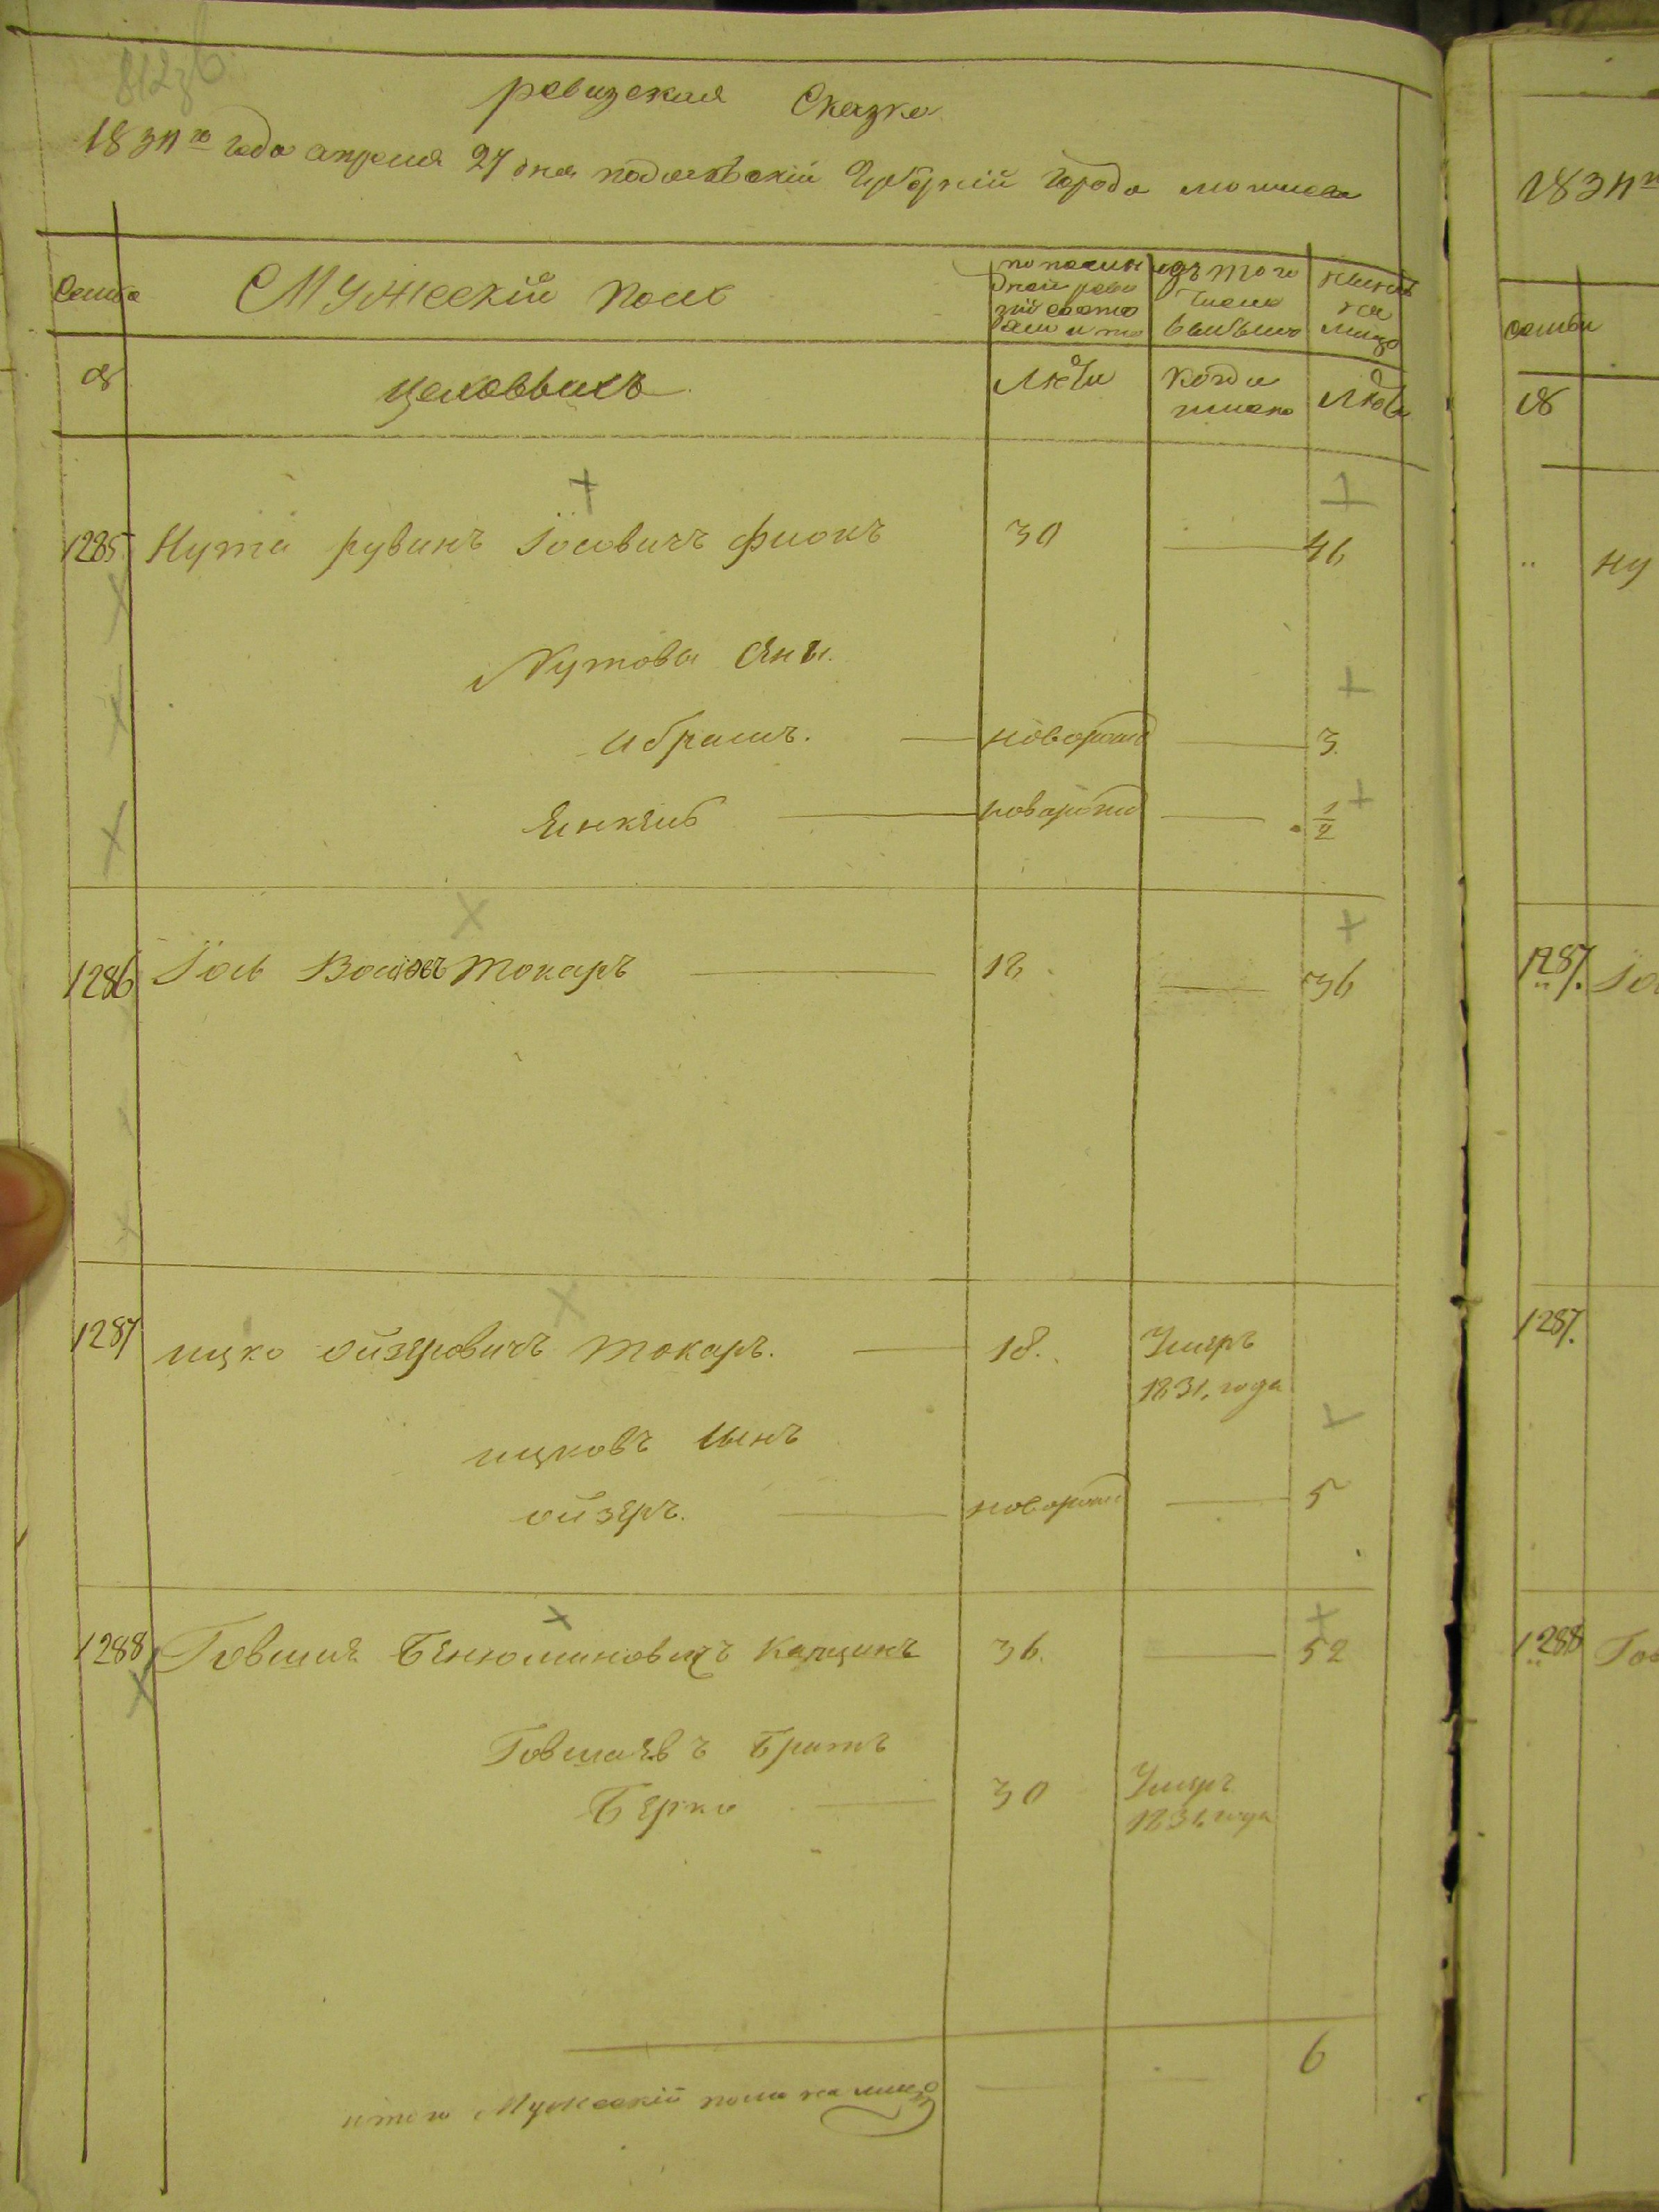 ревизская Сказка
1834го года апреля 27 дня подольской Губерний города
Семьи
Мужескiй полъ
по последней ревизiи состояло и
изъ того числа выбыло
ныне на лицо
№
Лета
когда именно
Лета
1285 Нута рувинъ Iосовичъ фиокъ 30 — 46
Нутовы сыны.
Абрамъ. — новорожд — 3.
Янкель — новорожд — 1/2
1286 Iось Токаръ — 18 — 36
1287 ицко ойзеровичъ токаръ. — 18. Умеръ
1831. года
ицковъ сынъ
ойзеръ. — новорожд — 5
1288 Говшия Бенюминовичъ Капцикъ 36. — 52
Говшаевъ Братъ
Берко — 30 Умеръ
1831 года
итого Мужескiй пола на лицо — — 6
1834
семьи
№
„ Ну
1287.
1287.
1288 Гов